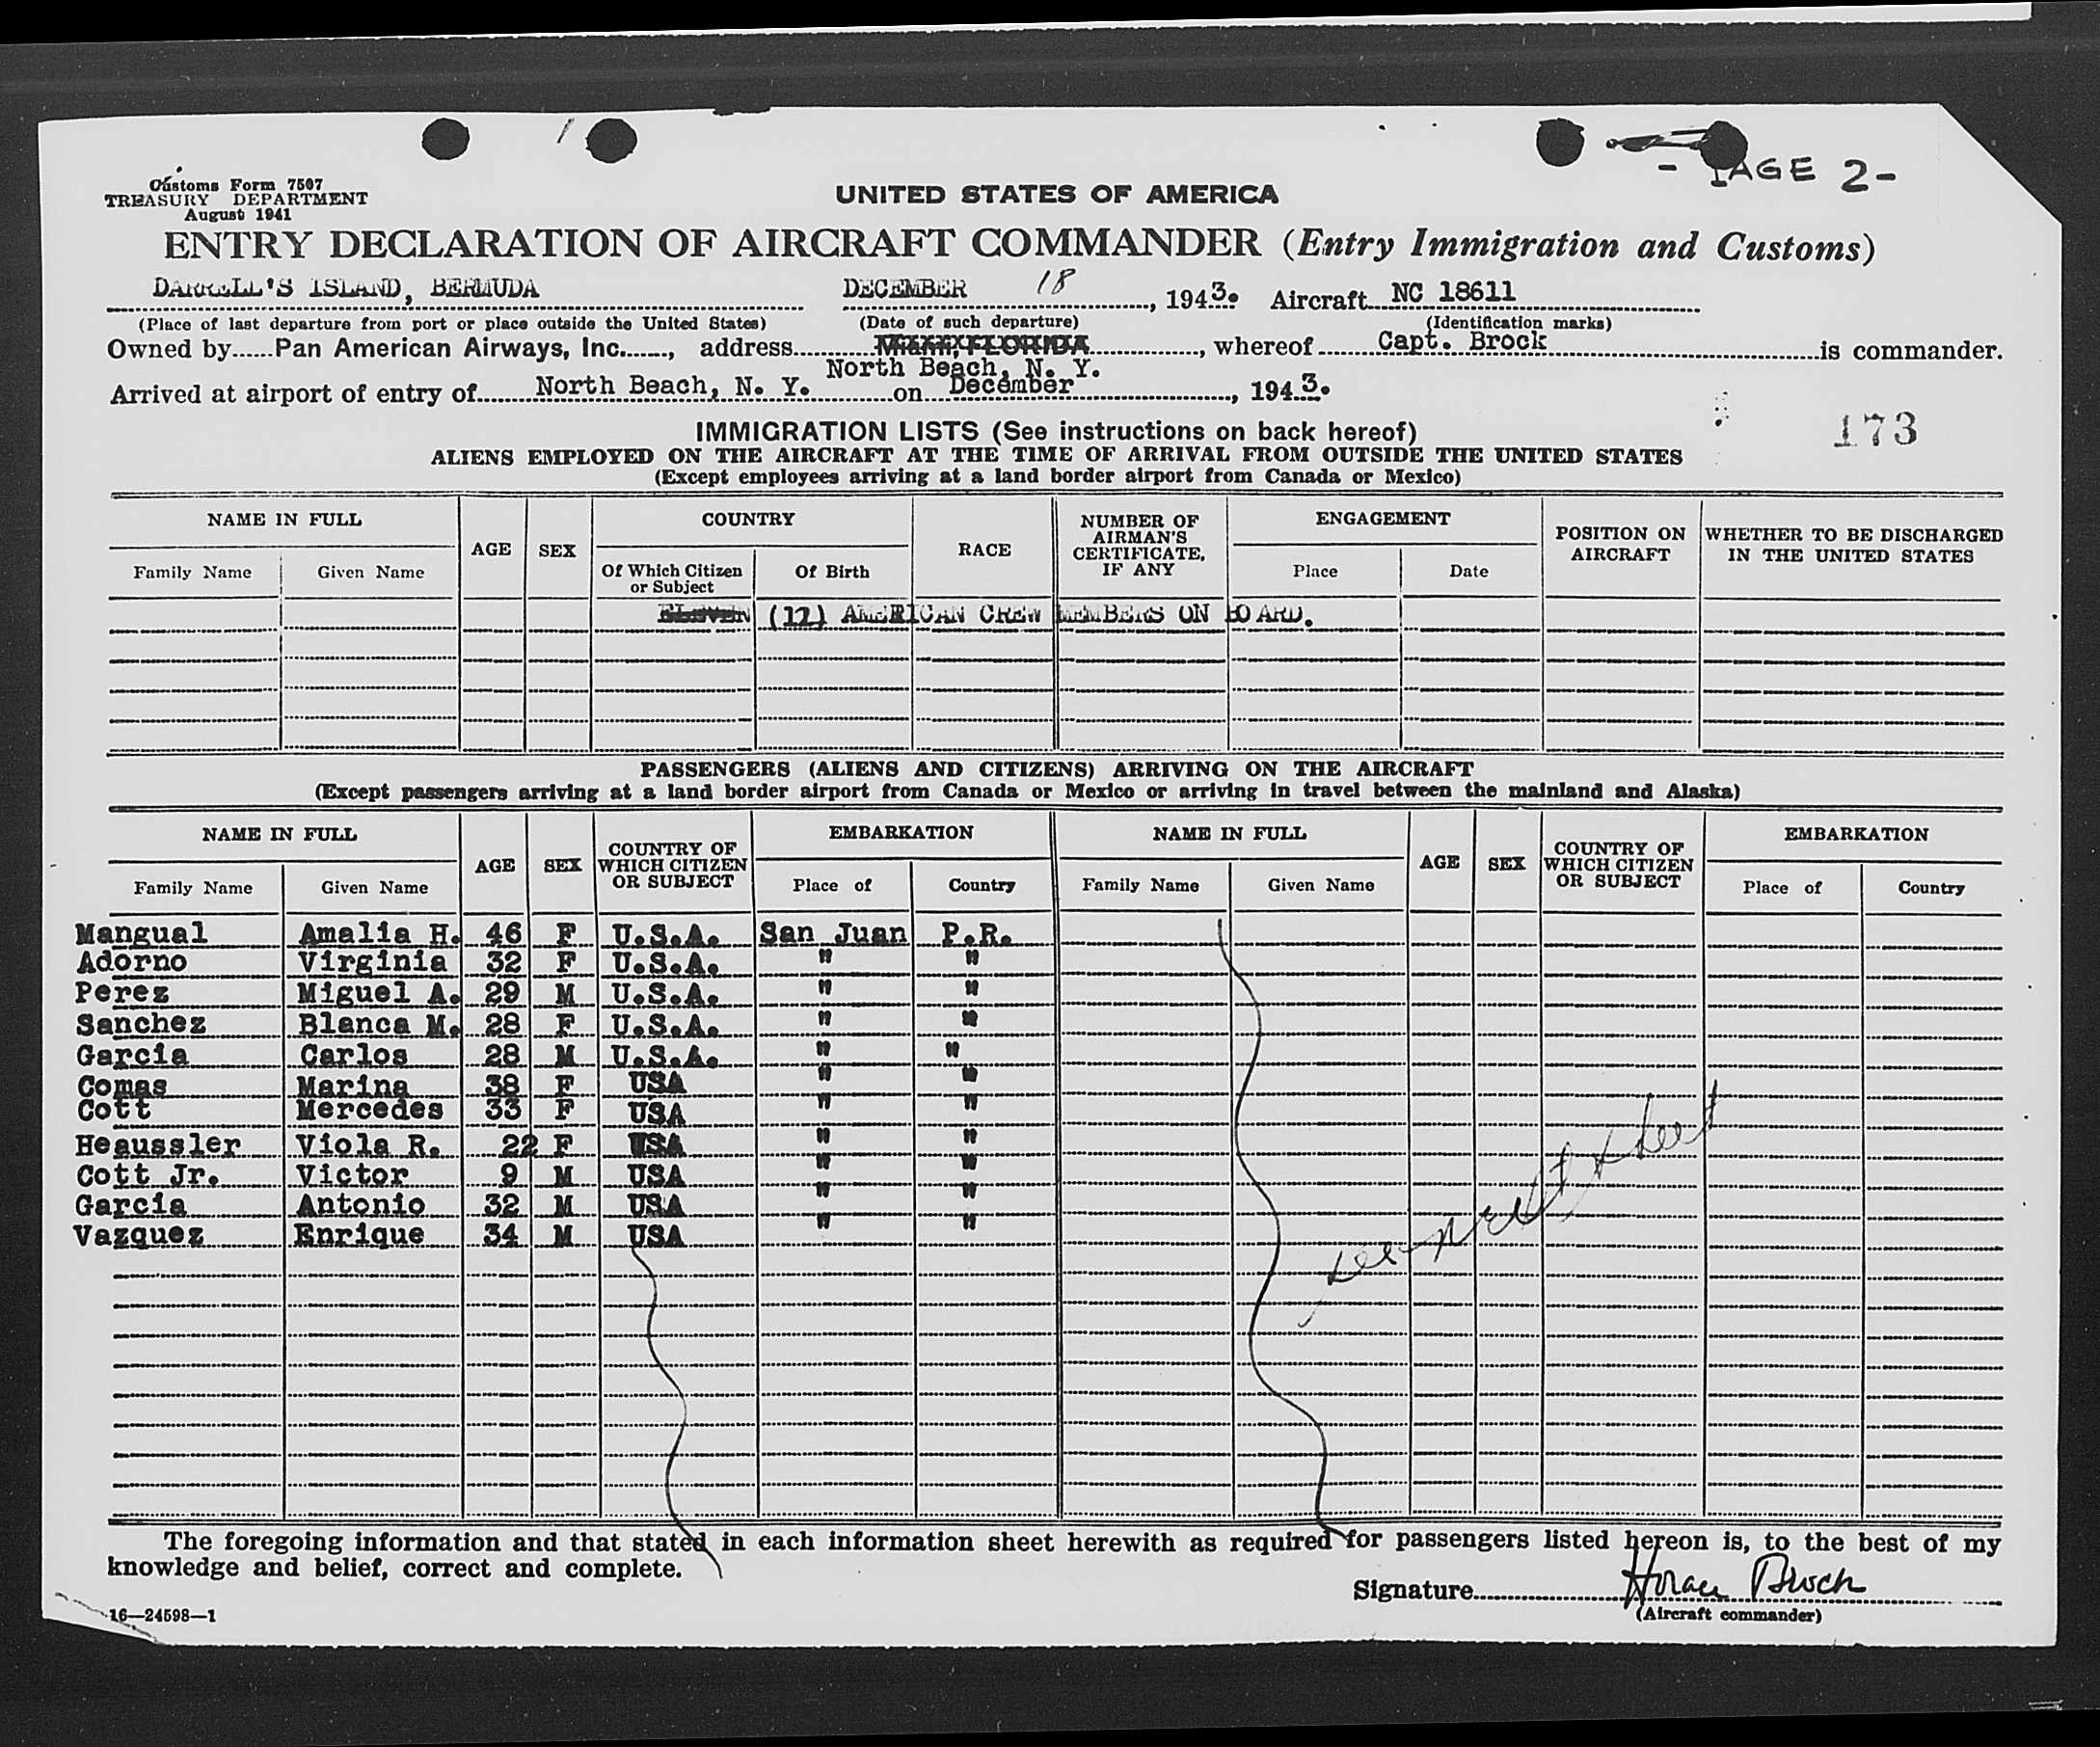 - PAGE 2-
Customs Form 7507
TREASURY DEPARTMENT
August 1941
UNITED STATES OF AMERICA
ENTRY DECLARATION OF AIRCRAFT COMMANDER (Entry Immigration and Customs)
DARRELL'S ISLAND, BERMUDA DECEMBER 18, 1943. Aircraft NC 18611
(Place of last departure from port or place outside the United States) (Date of such departure) (Identification marks)
Owned by Pan American Airways, Inc., address Miami, FLORIDA, whereof Capt. Brock is commander.
North Beach, N. Y.
Arrived at airport of entry of North Beach, N. Y. on December, 1943.
173
IMMIGRATION LISTS (See instructions on back hereof)
ALIENS EMPLOYED ON THE AIRCRAFT AT THE TIME OF ARRIVAL FROM OUTSIDE THE UNITED STATES
(Except employees arriving at a land border airport from Canada or Mexico)
NAME IN FULL AGE SEX COUNTRY RACE NUMBER OF AIRMAN'S CERTIFICATE, IF ANY ENGAGEMENT POSITION ON AIRCRAFT WHETHER TO BE DISCHARGED IN THE UNITED STATES
Family Name Given Name Of Which Citizen or Subject Of Birth Place Date
ELEVEN (12) AMERICAN CREW MEMBERS ON BOARD.
PASSENGERS (ALIENS AND CITIZENS) ARRIVING ON THE AIRCRAFT
(Except passengers arriving at a land border airport from Canada or Mexico or arriving in travel between the mainland and Alaska)
NAME IN FULL AGE SEX COUNTRY OF WHICH CITIZEN OR SUBJECT EMBARKATION NAME IN FULL AGE SEX COUNTRY OF WHICH CITIZEN OR SUBJECT EMBARKATION
Family Name Given Name Place of Country Family Name Given Name Place of Country
Mangual Amalia H. 46 F U.S.A. San Juan P.R.
Adorno Virginia 32 F U.S.A. " "
Perez Miguel A. 29 M U.S.A. " "
Sanchez Blanca M. 28 F U.S.A. " "
Garcia Carlos 28 M U.S.A. " "
Comas Marina 38 F USA " "
Cott Mercedes 33 F USA " "
Heaussler Viola R. 22 F USA " "
Cott Jr. Victor 9 M USA " "
Garcia Antonio 32 M USA " "
Vazquez Enrique 34 M USA " "
see next sheet
The foregoing information and that stated in each information sheet herewith as required for passengers listed hereon is, to the best of my
knowledge and belief, correct and complete.
Signature Horace Brock
(Aircraft commander)
16—24598—1